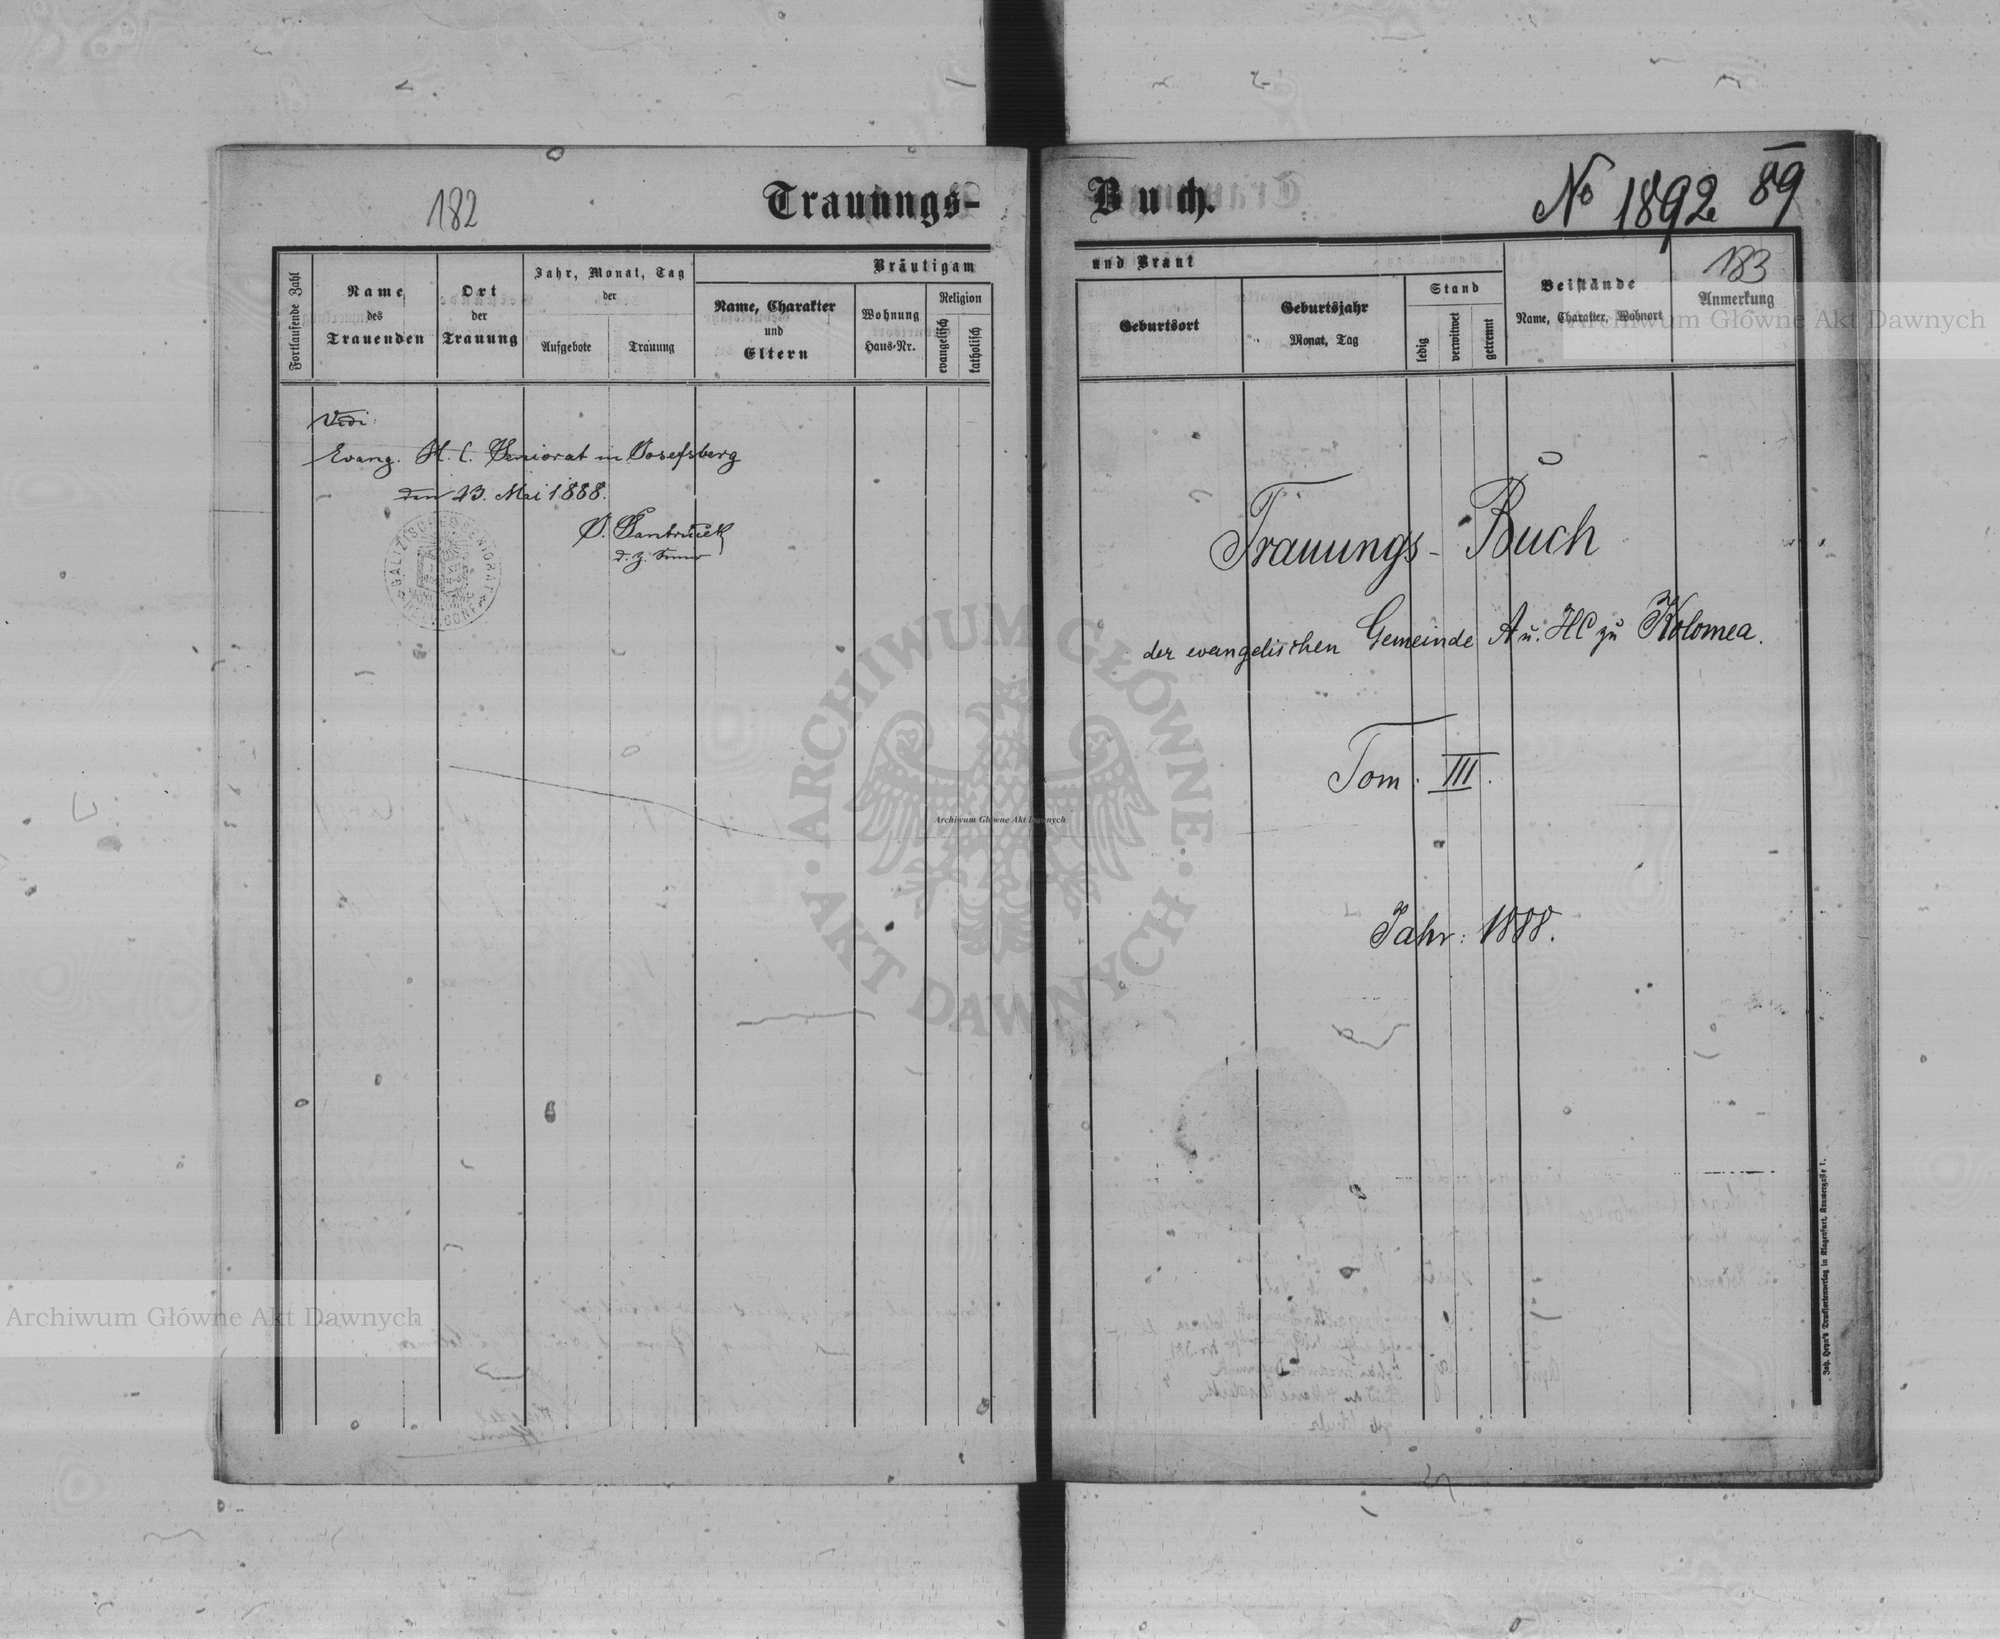 182
Trauungs-
Fortlaufende Zahl
Name
des
Trauenden
Ort
der
Trauung
Jahr, Monat, Tag
der
Aufgebote
Trauung
Bräutigam
Name, Charakter
und
Eltern
Wohnung
Haus-Nr.
Religion
evangelisch
katholisch
Vidi:
Evang. H. C. Seniorat in Josefsberg
den 23. Mai 1888.
d. z. Senior
GALIZISCHES SENIORAT
HELV. CONF.
Buch.
No 1892 89
183
und Braut
Geburtsort
Geburtsjahr
Monat, Tag
Stand
ledig
verwitwet
getrennt
Beistände
Name, Charakter, Wohnort
Anmerkung
Trauungs-Buch
der evangelischen Gemeinde A u. HC zu Kolomea.
Tom. III.
Jahr: 1888.
Joh. Heyn's Drucksortenverlag in Klagenfurt, Kramergasse 1.
Archiwum Główne Akt Dawnych
ARCHIWUM GŁÓWNE
AKT DAWNYCH
Archiwum Główne Akt Dawnych
Archiwum Główne Akt Dawnych